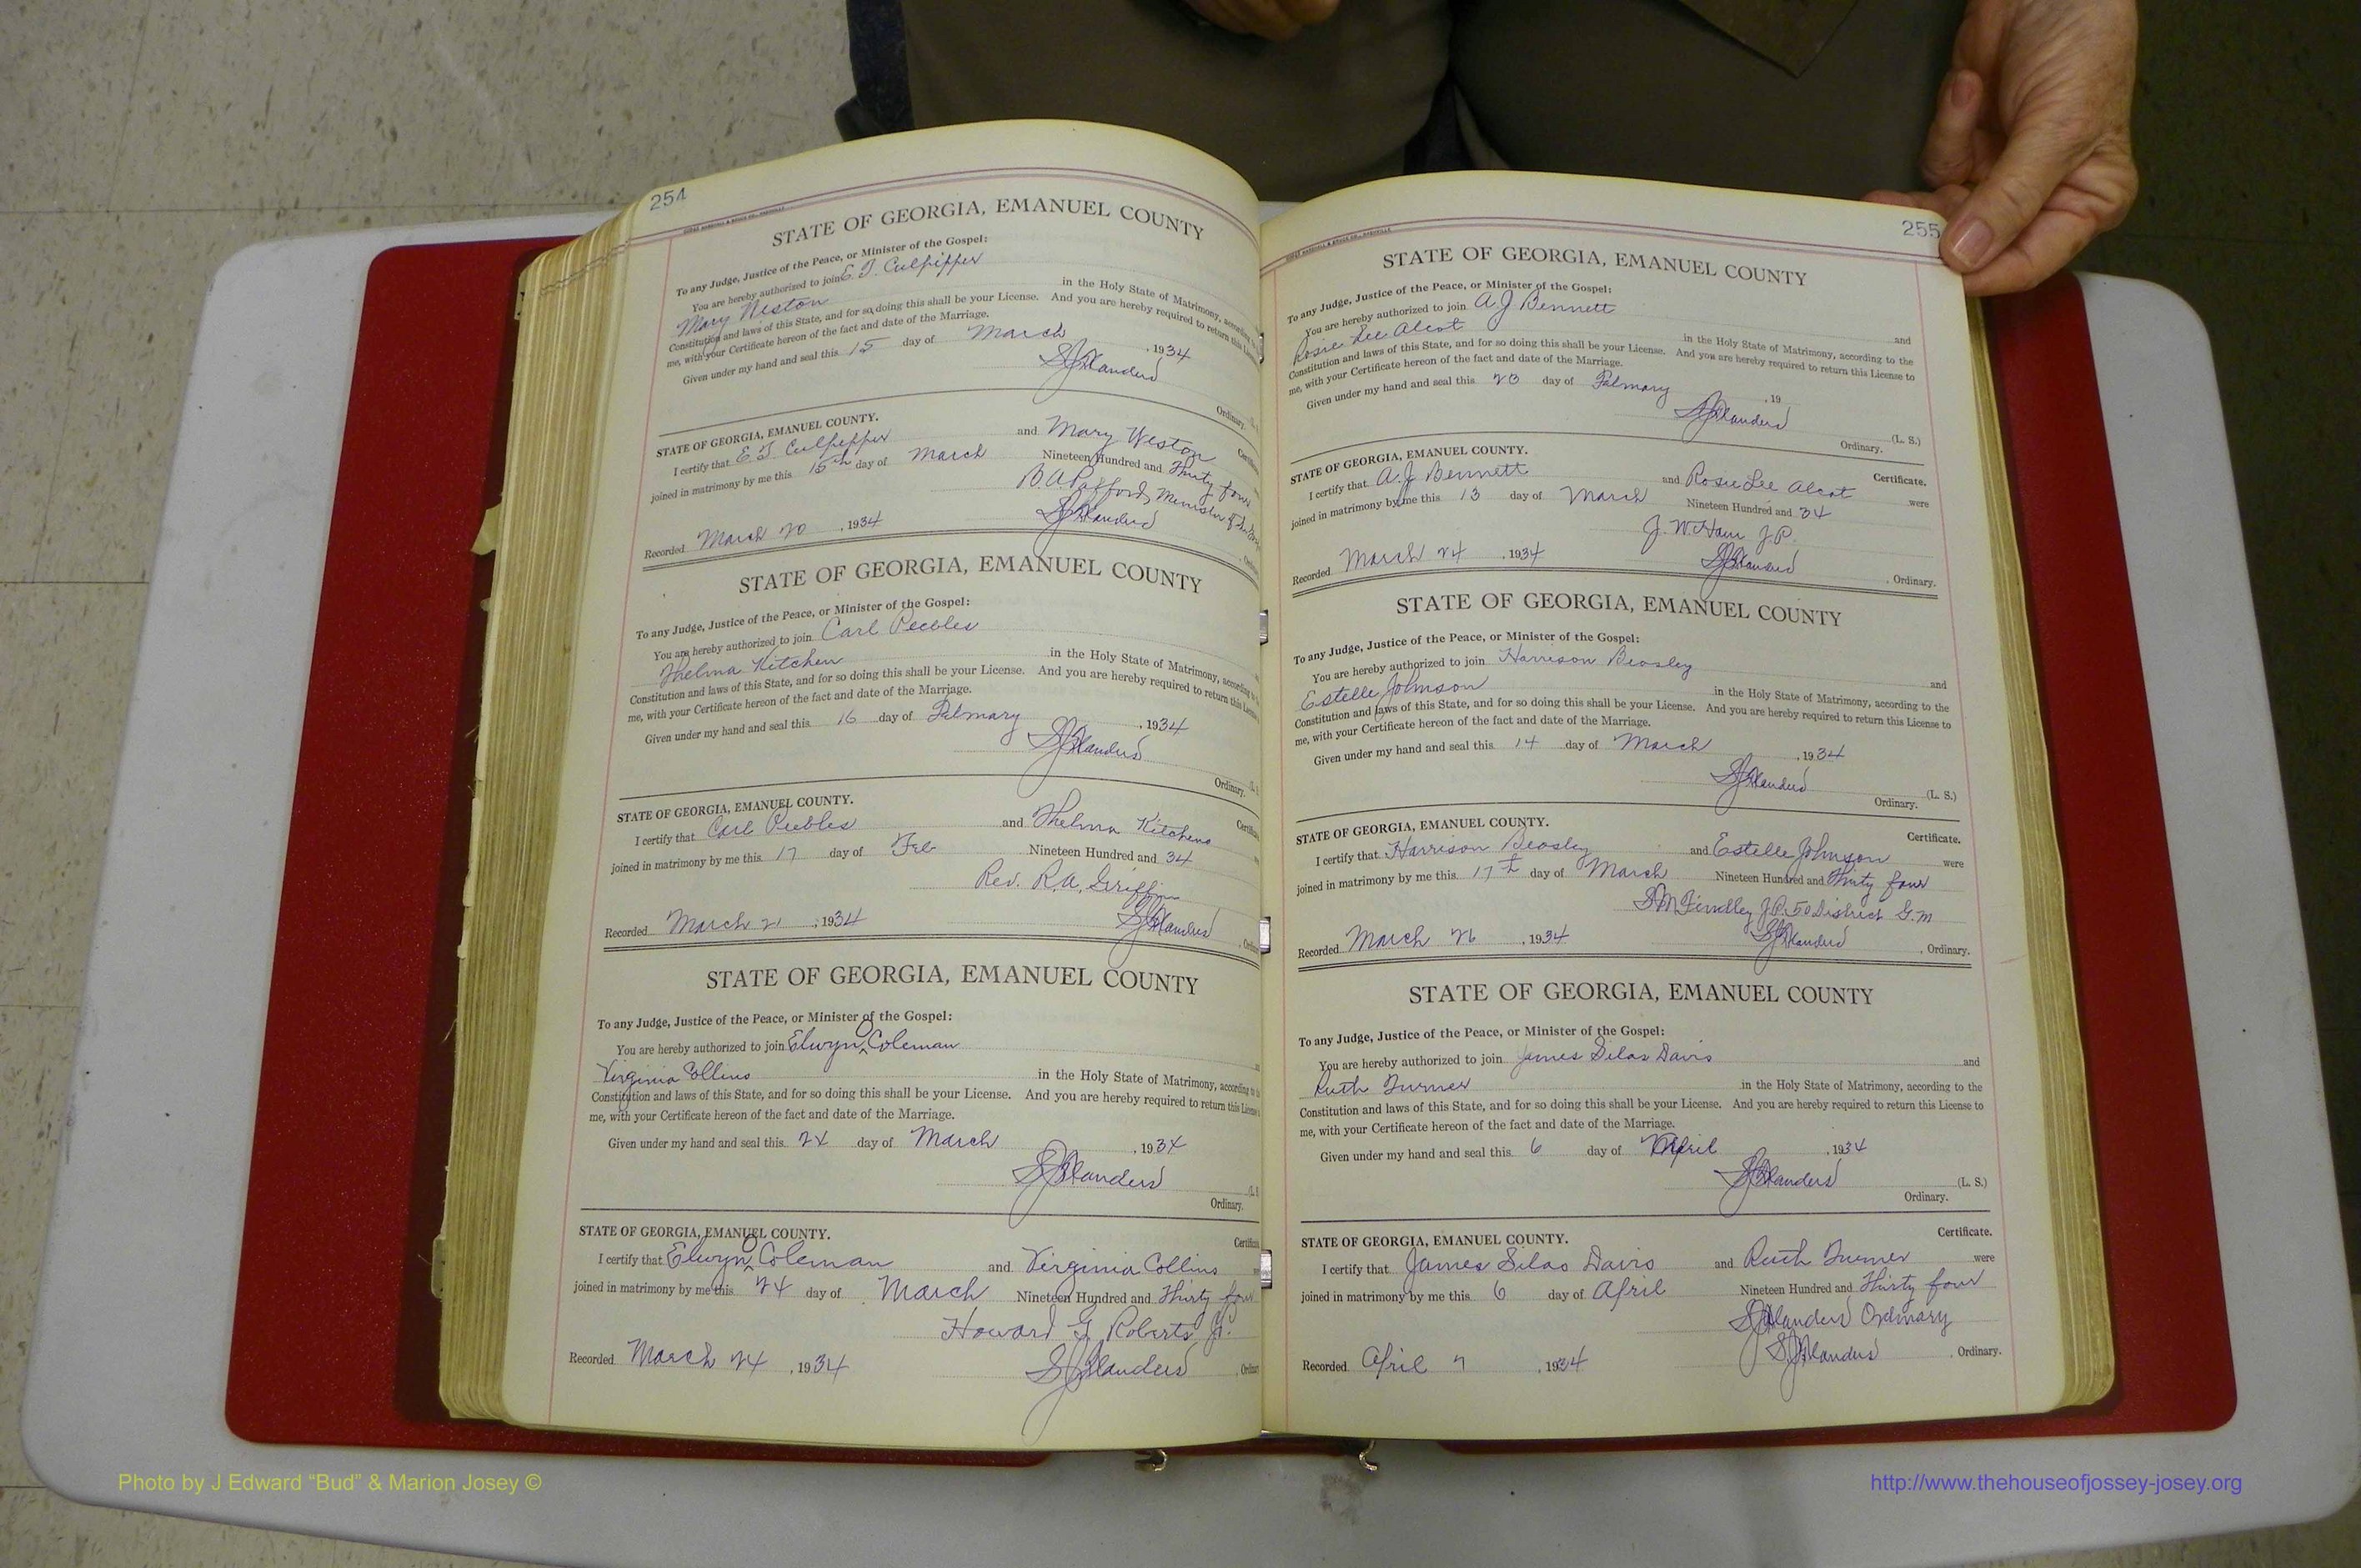 254
STATE OF GEORGIA, EMANUEL COUNTY
To any Judge, Justice of the Peace, or Minister of the Gospel:
You are hereby authorized to join E. T. Culpepper
Mary Weston in the Holy State of Matrimony, according
Constitution and laws of this State, and for so doing this shall be your License. And you are hereby required to return this License
me, with your Certificate hereon of the fact and date of the Marriage.
Given under my hand and seal this 15 day of March, 1934
Ordinary.
STATE OF GEORGIA, EMANUEL COUNTY.
I certify that E. T. Culpepper and Mary Weston
joined in matrimony by me this 15th day of March Nineteen Hundred and Thirty four
B. A. Pafford, Minister of the
Recorded March 20, 1934
STATE OF GEORGIA, EMANUEL COUNTY
To any Judge, Justice of the Peace, or Minister of the Gospel:
You are hereby authorized to join Carl Peebles
Thelma Kitchen in the Holy State of Matrimony, according
Constitution and laws of this State, and for so doing this shall be your License. And you are hereby required to return this License
me, with your Certificate hereon of the fact and date of the Marriage.
Given under my hand and seal this 16 day of February, 1934
Ordinary.
STATE OF GEORGIA, EMANUEL COUNTY.
I certify that Carl Peebles and Thelma Kitchens
joined in matrimony by me this 17 day of Feb Nineteen Hundred and 34
Rev. R. A. Griffin
Recorded March 21, 1934
STATE OF GEORGIA, EMANUEL COUNTY
To any Judge, Justice of the Peace, or Minister of the Gospel:
You are hereby authorized to join Elwyn O Coleman
Virginia Collins in the Holy State of Matrimony, according to
Constitution and laws of this State, and for so doing this shall be your License. And you are hereby required to return this License
me, with your Certificate hereon of the fact and date of the Marriage.
Given under my hand and seal this 24 day of March, 1934
S J Flanders
Ordinary.
STATE OF GEORGIA, EMANUEL COUNTY.
I certify that Elwyn O Coleman and Virginia Collins
joined in matrimony by me this 24 day of March Nineteen Hundred and Thirty four
Howard G. Roberts Jr.
Recorded March 24, 1934 S J Flanders
255
STATE OF GEORGIA, EMANUEL COUNTY
To any Judge, Justice of the Peace, or Minister of the Gospel:
You are hereby authorized to join A. J. Bennett and
Rosie Lee Alcot in the Holy State of Matrimony, according to the
Constitution and laws of this State, and for so doing this shall be your License. And you are hereby required to return this License to
me, with your Certificate hereon of the fact and date of the Marriage.
Given under my hand and seal this 23 day of February, 19
S J Flanders (L. S.)
Ordinary.
STATE OF GEORGIA, EMANUEL COUNTY. Certificate.
I certify that A. J. Bennett and Rosie Lee Alcot were
joined in matrimony by me this 13 day of March Nineteen Hundred and 34
J. W. Ham J.P.
Recorded March 24, 1934 S J Flanders, Ordinary.
STATE OF GEORGIA, EMANUEL COUNTY
To any Judge, Justice of the Peace, or Minister of the Gospel:
You are hereby authorized to join Harrison Beasley and
Estelle Johnson in the Holy State of Matrimony, according to the
Constitution and laws of this State, and for so doing this shall be your License. And you are hereby required to return this License to
me, with your Certificate hereon of the fact and date of the Marriage.
Given under my hand and seal this 14 day of March, 1934
S J Flanders (L. S.)
Ordinary.
STATE OF GEORGIA, EMANUEL COUNTY. Certificate.
I certify that Harrison Beasley and Estelle Johnson were
joined in matrimony by me this 17th day of March Nineteen Hundred and Thirty four
Findley J.P. 50 District G.M
Recorded March 26, 1934 S J Flanders, Ordinary.
STATE OF GEORGIA, EMANUEL COUNTY
To any Judge, Justice of the Peace, or Minister of the Gospel:
You are hereby authorized to join James Silas Davis and
Ruth Turner in the Holy State of Matrimony, according to the
Constitution and laws of this State, and for so doing this shall be your License. And you are hereby required to return this License to
me, with your Certificate hereon of the fact and date of the Marriage.
Given under my hand and seal this 6 day of April, 1934
S J Flanders (L. S.)
Ordinary.
STATE OF GEORGIA, EMANUEL COUNTY. Certificate.
I certify that James Silas Davis and Ruth Turner were
joined in matrimony by me this 6 day of April Nineteen Hundred and Thirty four
S J Flanders Ordinary
Recorded April 7, 1934 S J Flanders, Ordinary.
Photo by J Edward “Bud” & Marion Josey ©
http://www.thehouseofjossey-josey.org